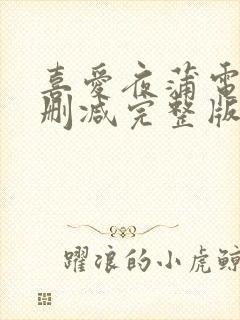 喜愛夜蒲電
刪減完整版
躍浪的小虎鯨